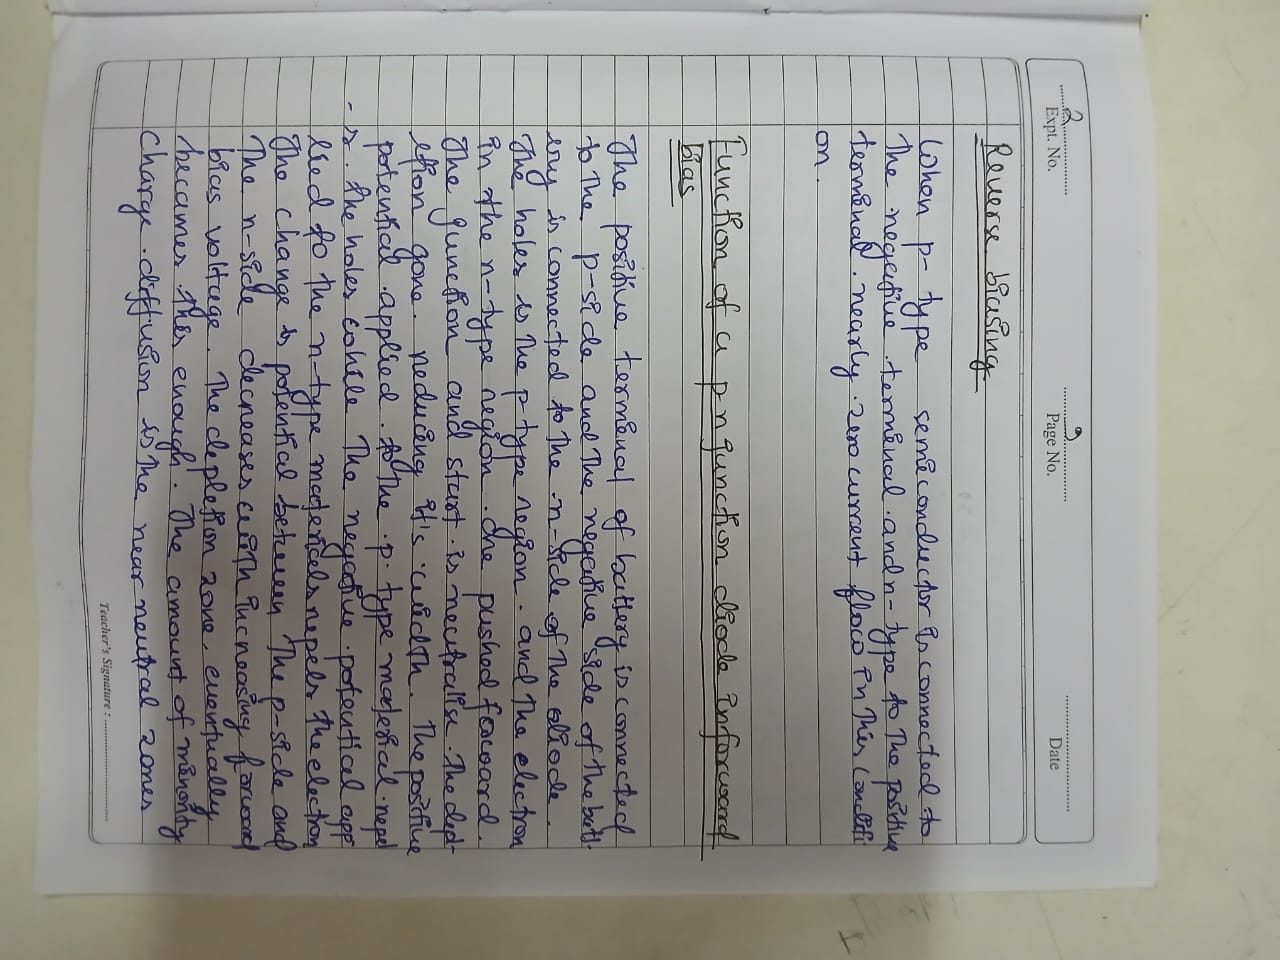 2
Expt. No.
Page No.
Date
Reverse biasing
When p-type semiconductor is connected to
The negative terminal and n-type to the positive
terminal. nearly zero current flow in this conditi
on.
Function of a p n junction diode in forward
bias
The positive terminal of battery is connected
to the p-side and the negative side of the batt-
ery is connected to the n-side of the diode.
The holes is the p type region. and the electron
in the n-type region. are pushed forward.
The junction and start is neutralise. The depl-
etion zone. reducing it's width. The positive
potential applied. to the p. type material. repel
s. the holes while The negative potential app
lied to the n-type materials repels the electron
The change is potential between The p-side and
The n-side decreases with increasing forward
bias voltage. The depletion zone, eventually
becames this enough. The amount of minority
Charge. diffusion is the near neutral zones
Teacher's Signature :